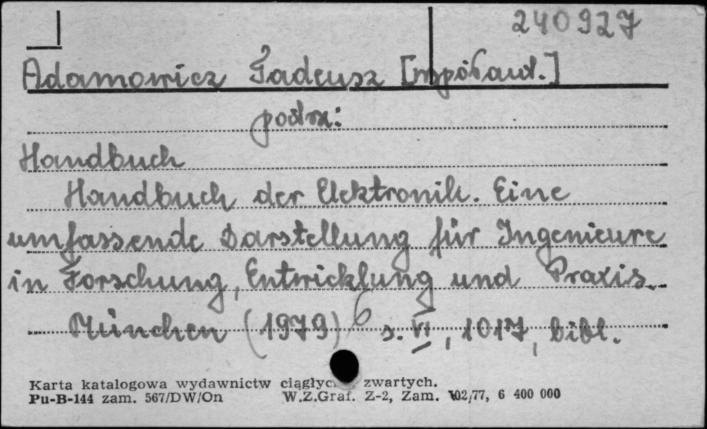 240927
Adamowicz Tadeusz [współaut.]
podrz:
Handbuch
Handbuch der Elektronik. Eine
umfassende Darstellung für Ingenieure
in Forschung, Entwicklung und Praxis.
München (1979) 6 s. VI, 1017, bibl.
Karta katalogowa wydawnictw ciągłyc zwartych.
Pu-B-144 zam. 567/DW/On W.Z.Graf. Z-2, Zam. 102/77, 6 400 000